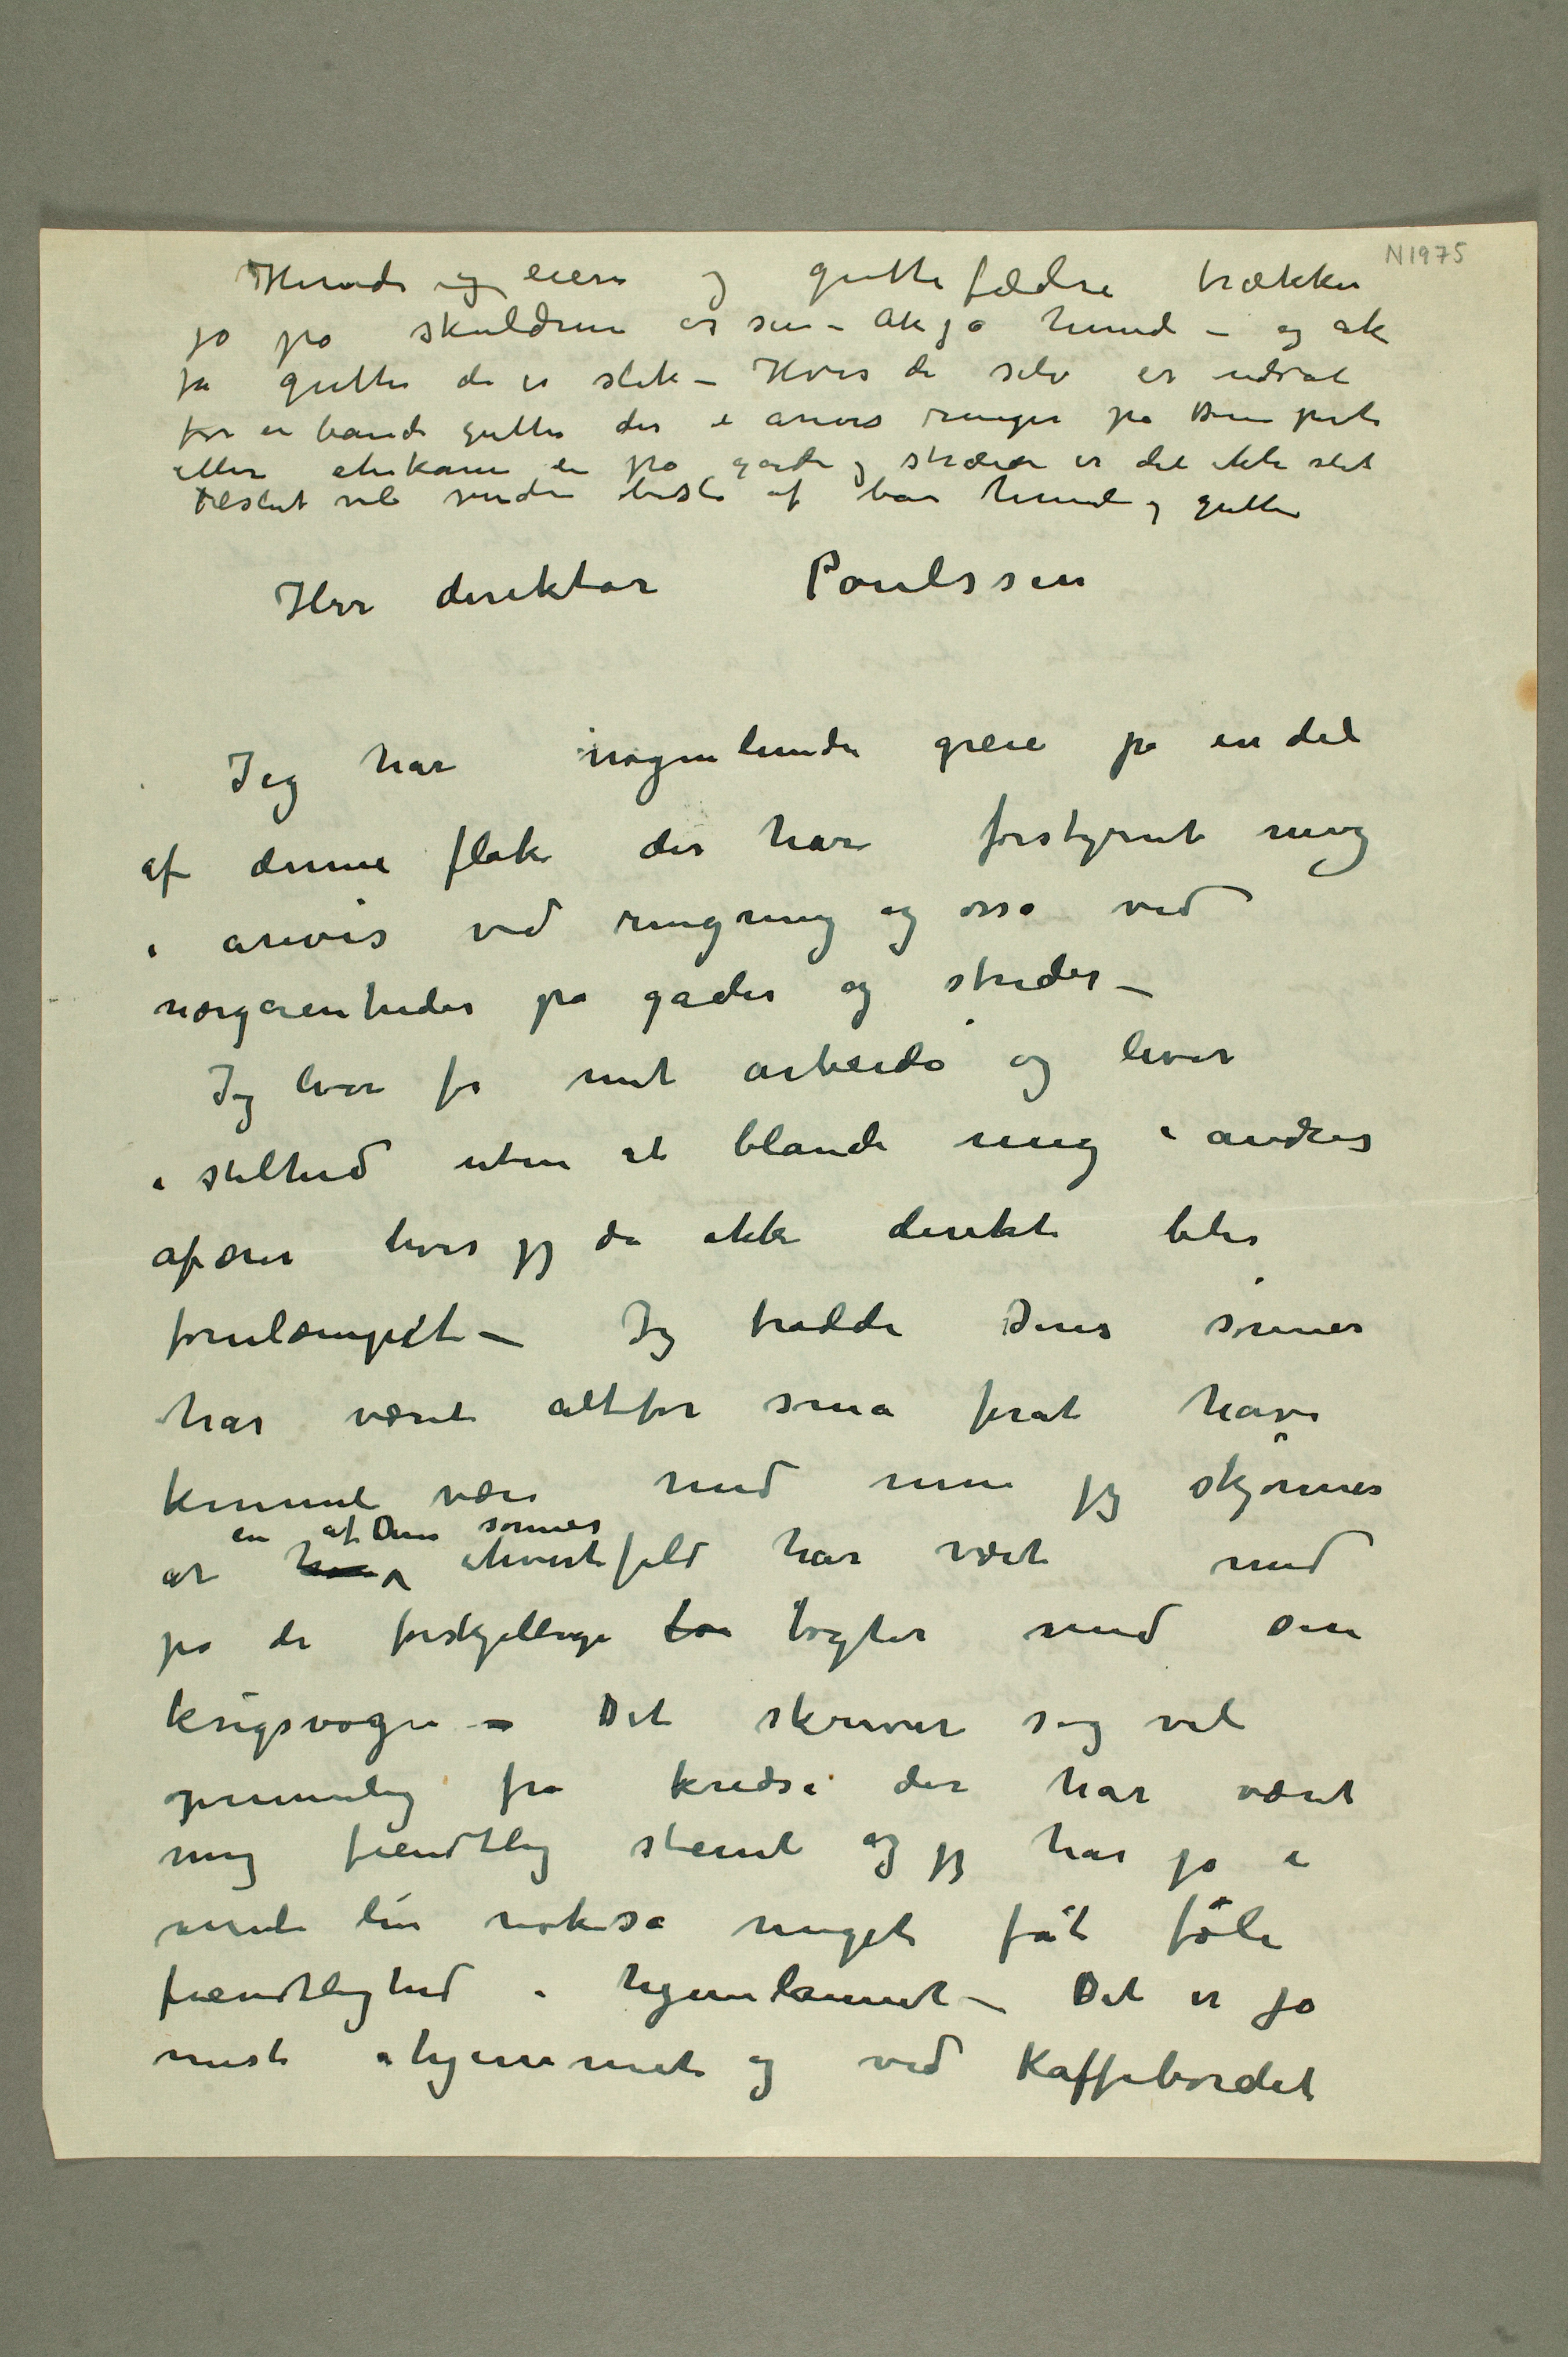 N1975
Hunde og eiere og guttefædre trækker
jo på skuldrene og sier – Ak ja hunde – og ak
ja gutter de er slik – Hvis de selv er udsat
for en bande gutter der i årevis ringer på Deres port
eller en på gader og stræder er det ikke slik
Tilslut vil verden bestå af bare hunde og gutter
Herr direktør Poulssen
Jeg har nogenlunde greie på en del
af denne flok der har forstyrret mig
i årevis ved ringning og også ved
nærgåenheder på gader og stræder –
Jeg lever for mit arbeide og lever
i stilhed uten at blande mig i andres
afærer hvis jeg da ikke direkte blir
forulæmpet – Jeg trodde Deres sønner
har været altfor små forat have
kunnet være med men jeg skjønner
en af Deres sønner
at ihvertfald har været med
på de forskjellige togter med sin
krigsvogn – Det skriver sig vel
oprinnelig fra kredse der har været
mig fiendtlig stemt og jeg har jo i
mit liv nokså meget fåt føle
fiendtlighed i hjemlannet – Det er jo
mest i hjemmet og ved Kaffebordet